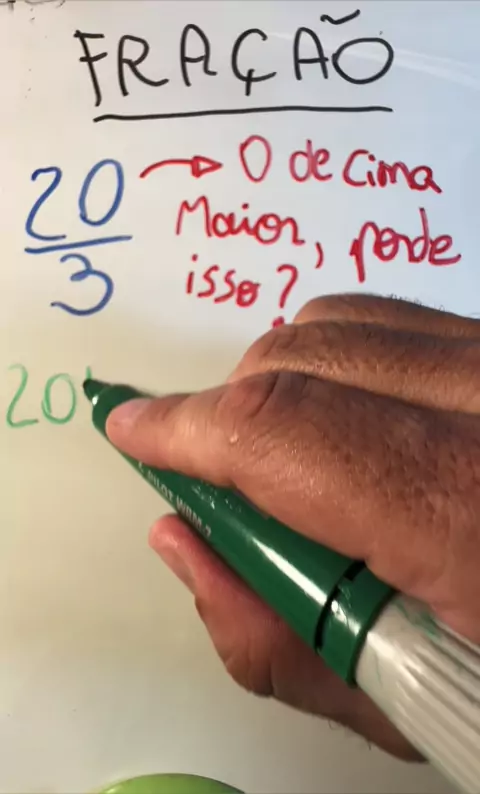 FRAÇÃO
20 → O de cima
Maior, pode
3
isso?
20
PILOT WBM-7